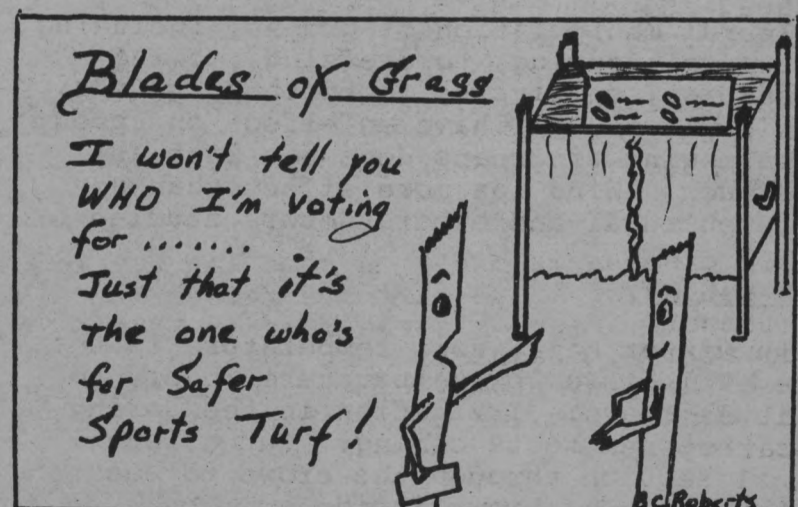 Blades of Grass
I won't tell you
WHO I'm voting
for .......
Just that it's
the one who's
for Safer
Sports Turf!
B.C. Roberts